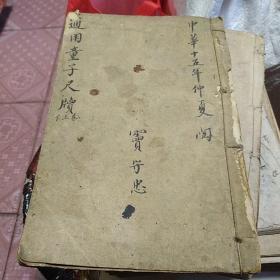 中華十五年仲夏閱
通用童子尺牘
竇守忠